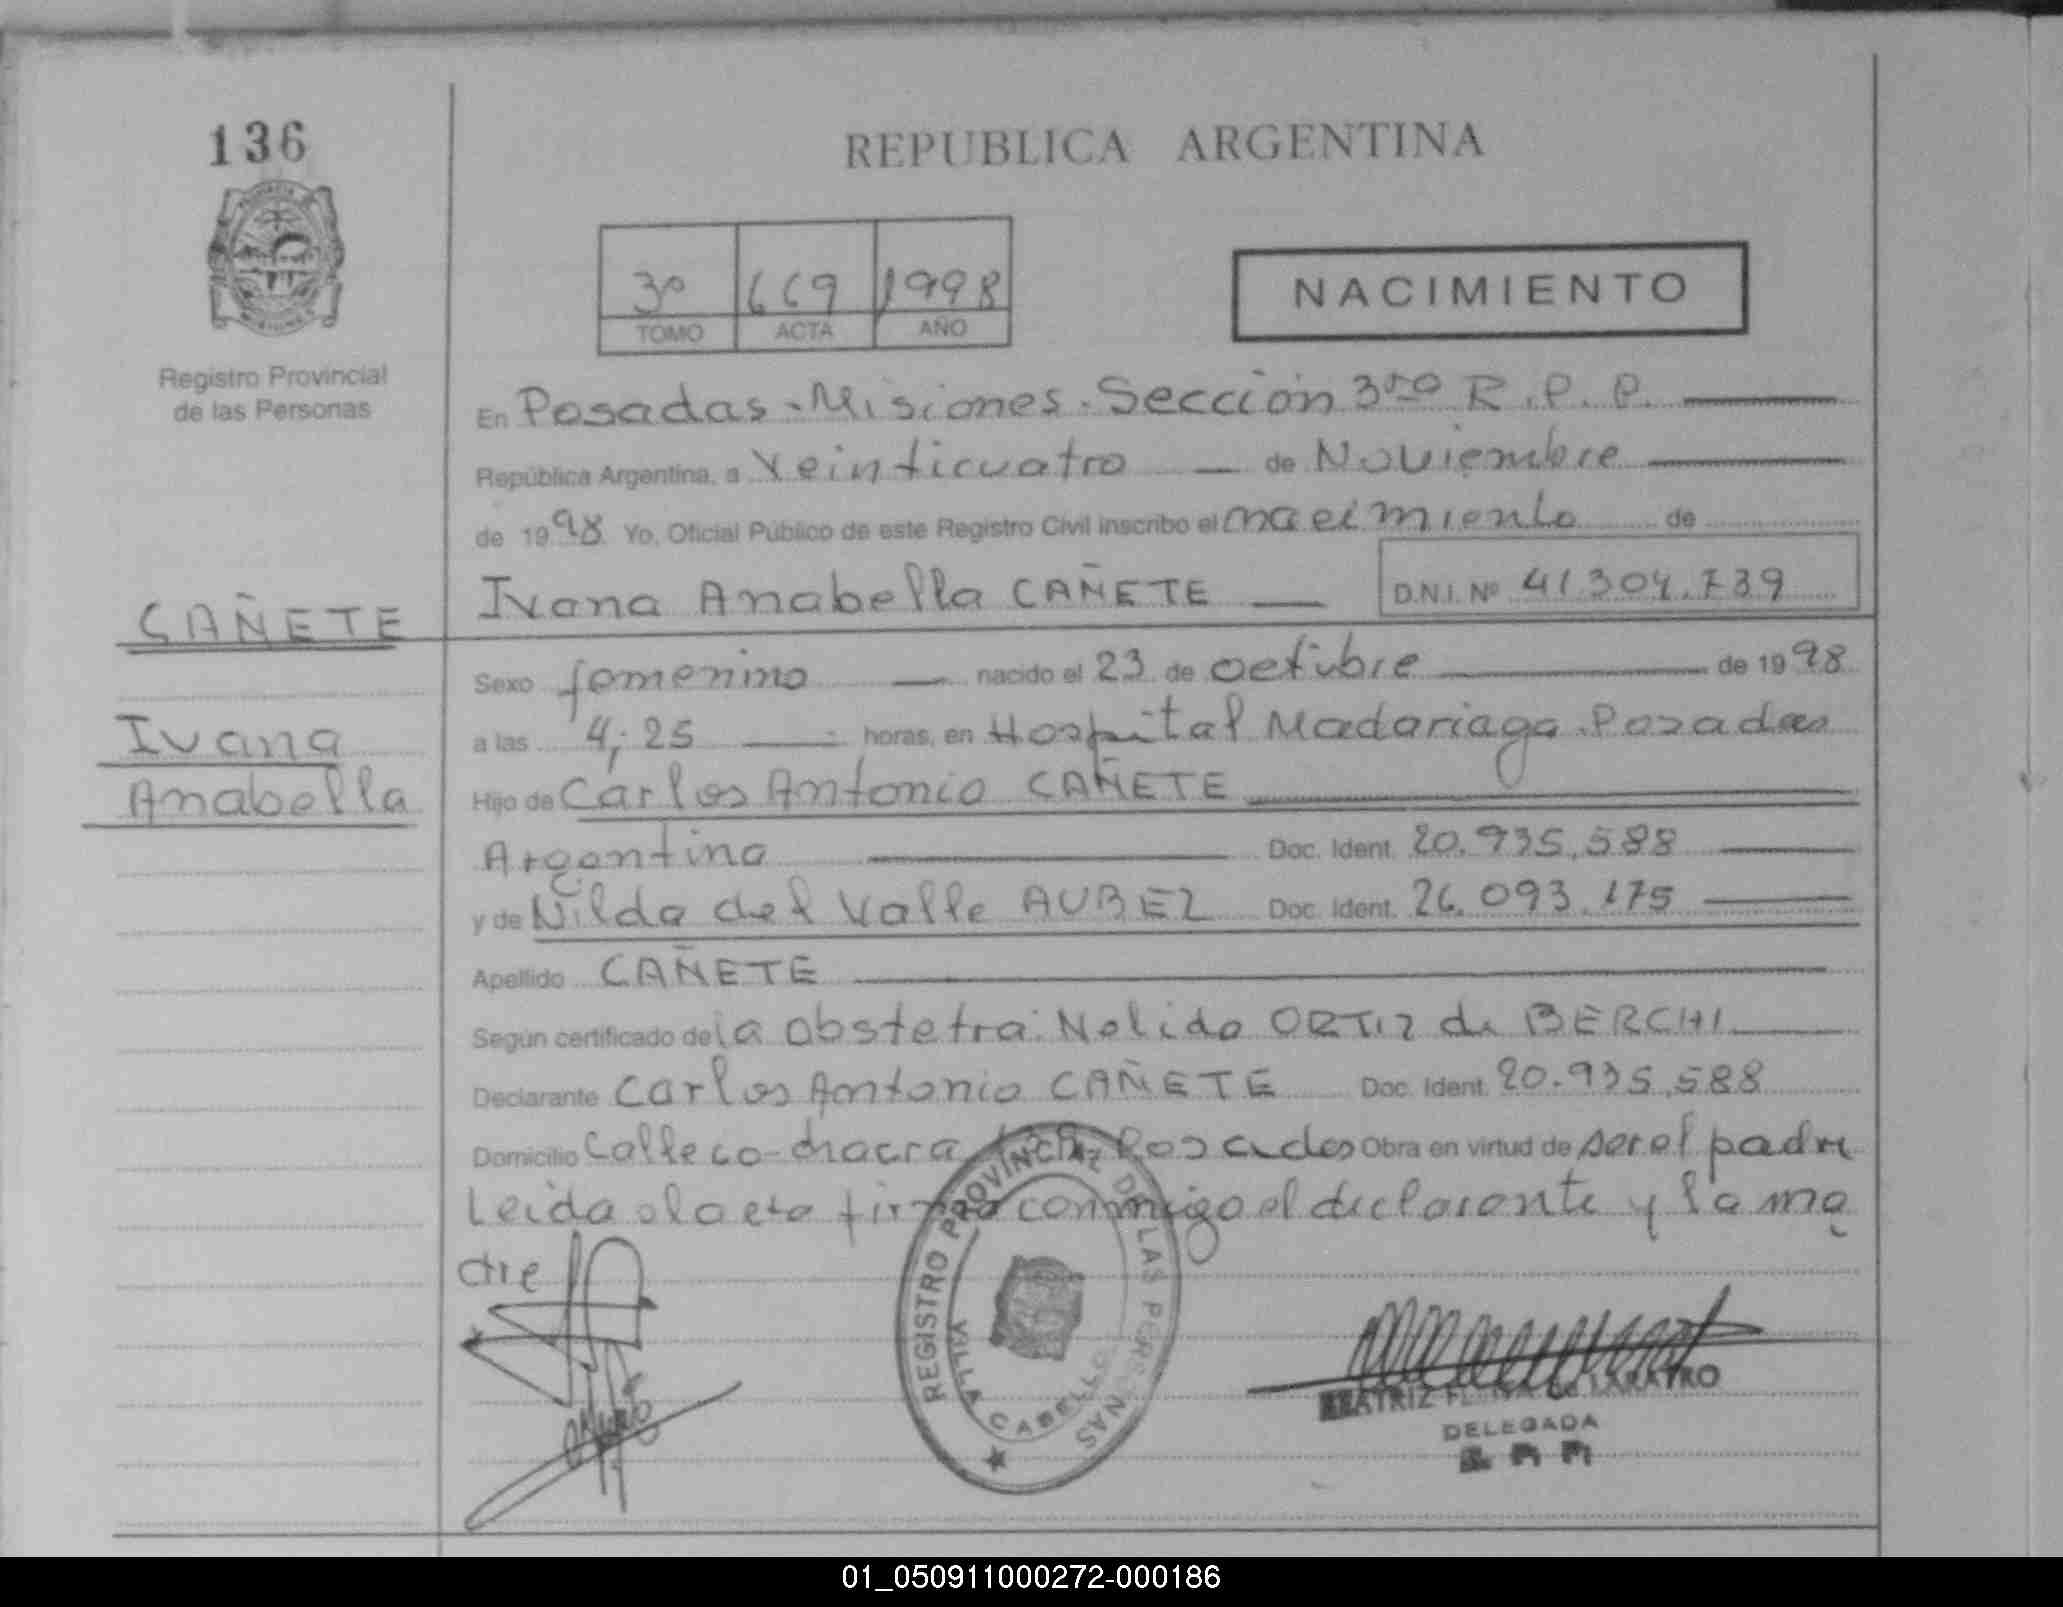 136
REPUBLICA ARGENTINA
3º 669 1998
TOMO ACTA AÑO
NACIMIENTO
Registro Provincial
de las Personas
En Posadas - Misiones. Sección 3ra R. P. P.
República Argentina, a Veinticuatro de Noviembre
de 1998 Yo, Oficial Público de este Registro Civil inscribo el nacimiento de
Ivana Anabella CAÑETE D.N.I. Nº 41.304.739
CAÑETE
Ivana
Anabella
Sexo femenino nacido el 23 de octubre de 1998
a las 4,25 horas, en Hospital Madariaga. Posadas
Hijo de Carlos Antonio CAÑETE
Argentina Doc. Ident. 20.935.588
y de Nilda del Valle AUBEZ Doc. Ident. 26.093.175
Apellido CAÑETE
Según certificado de la obstetra: Nelida ORTIZ de BERCHI
Declarante Carlos Antonio CAÑETE Doc. Ident. 20.935.588
Domicilio Calle 60 - chacra Posadas Obra en virtud de ser el padre
Leida el acta firma conmigo el declarante y la ma
dre
REGISTRO PROVINCIAL DE LAS PERSONAS
VILLA CABELLO
BEATRIZ
DELEGADA
01_050911000272-000186